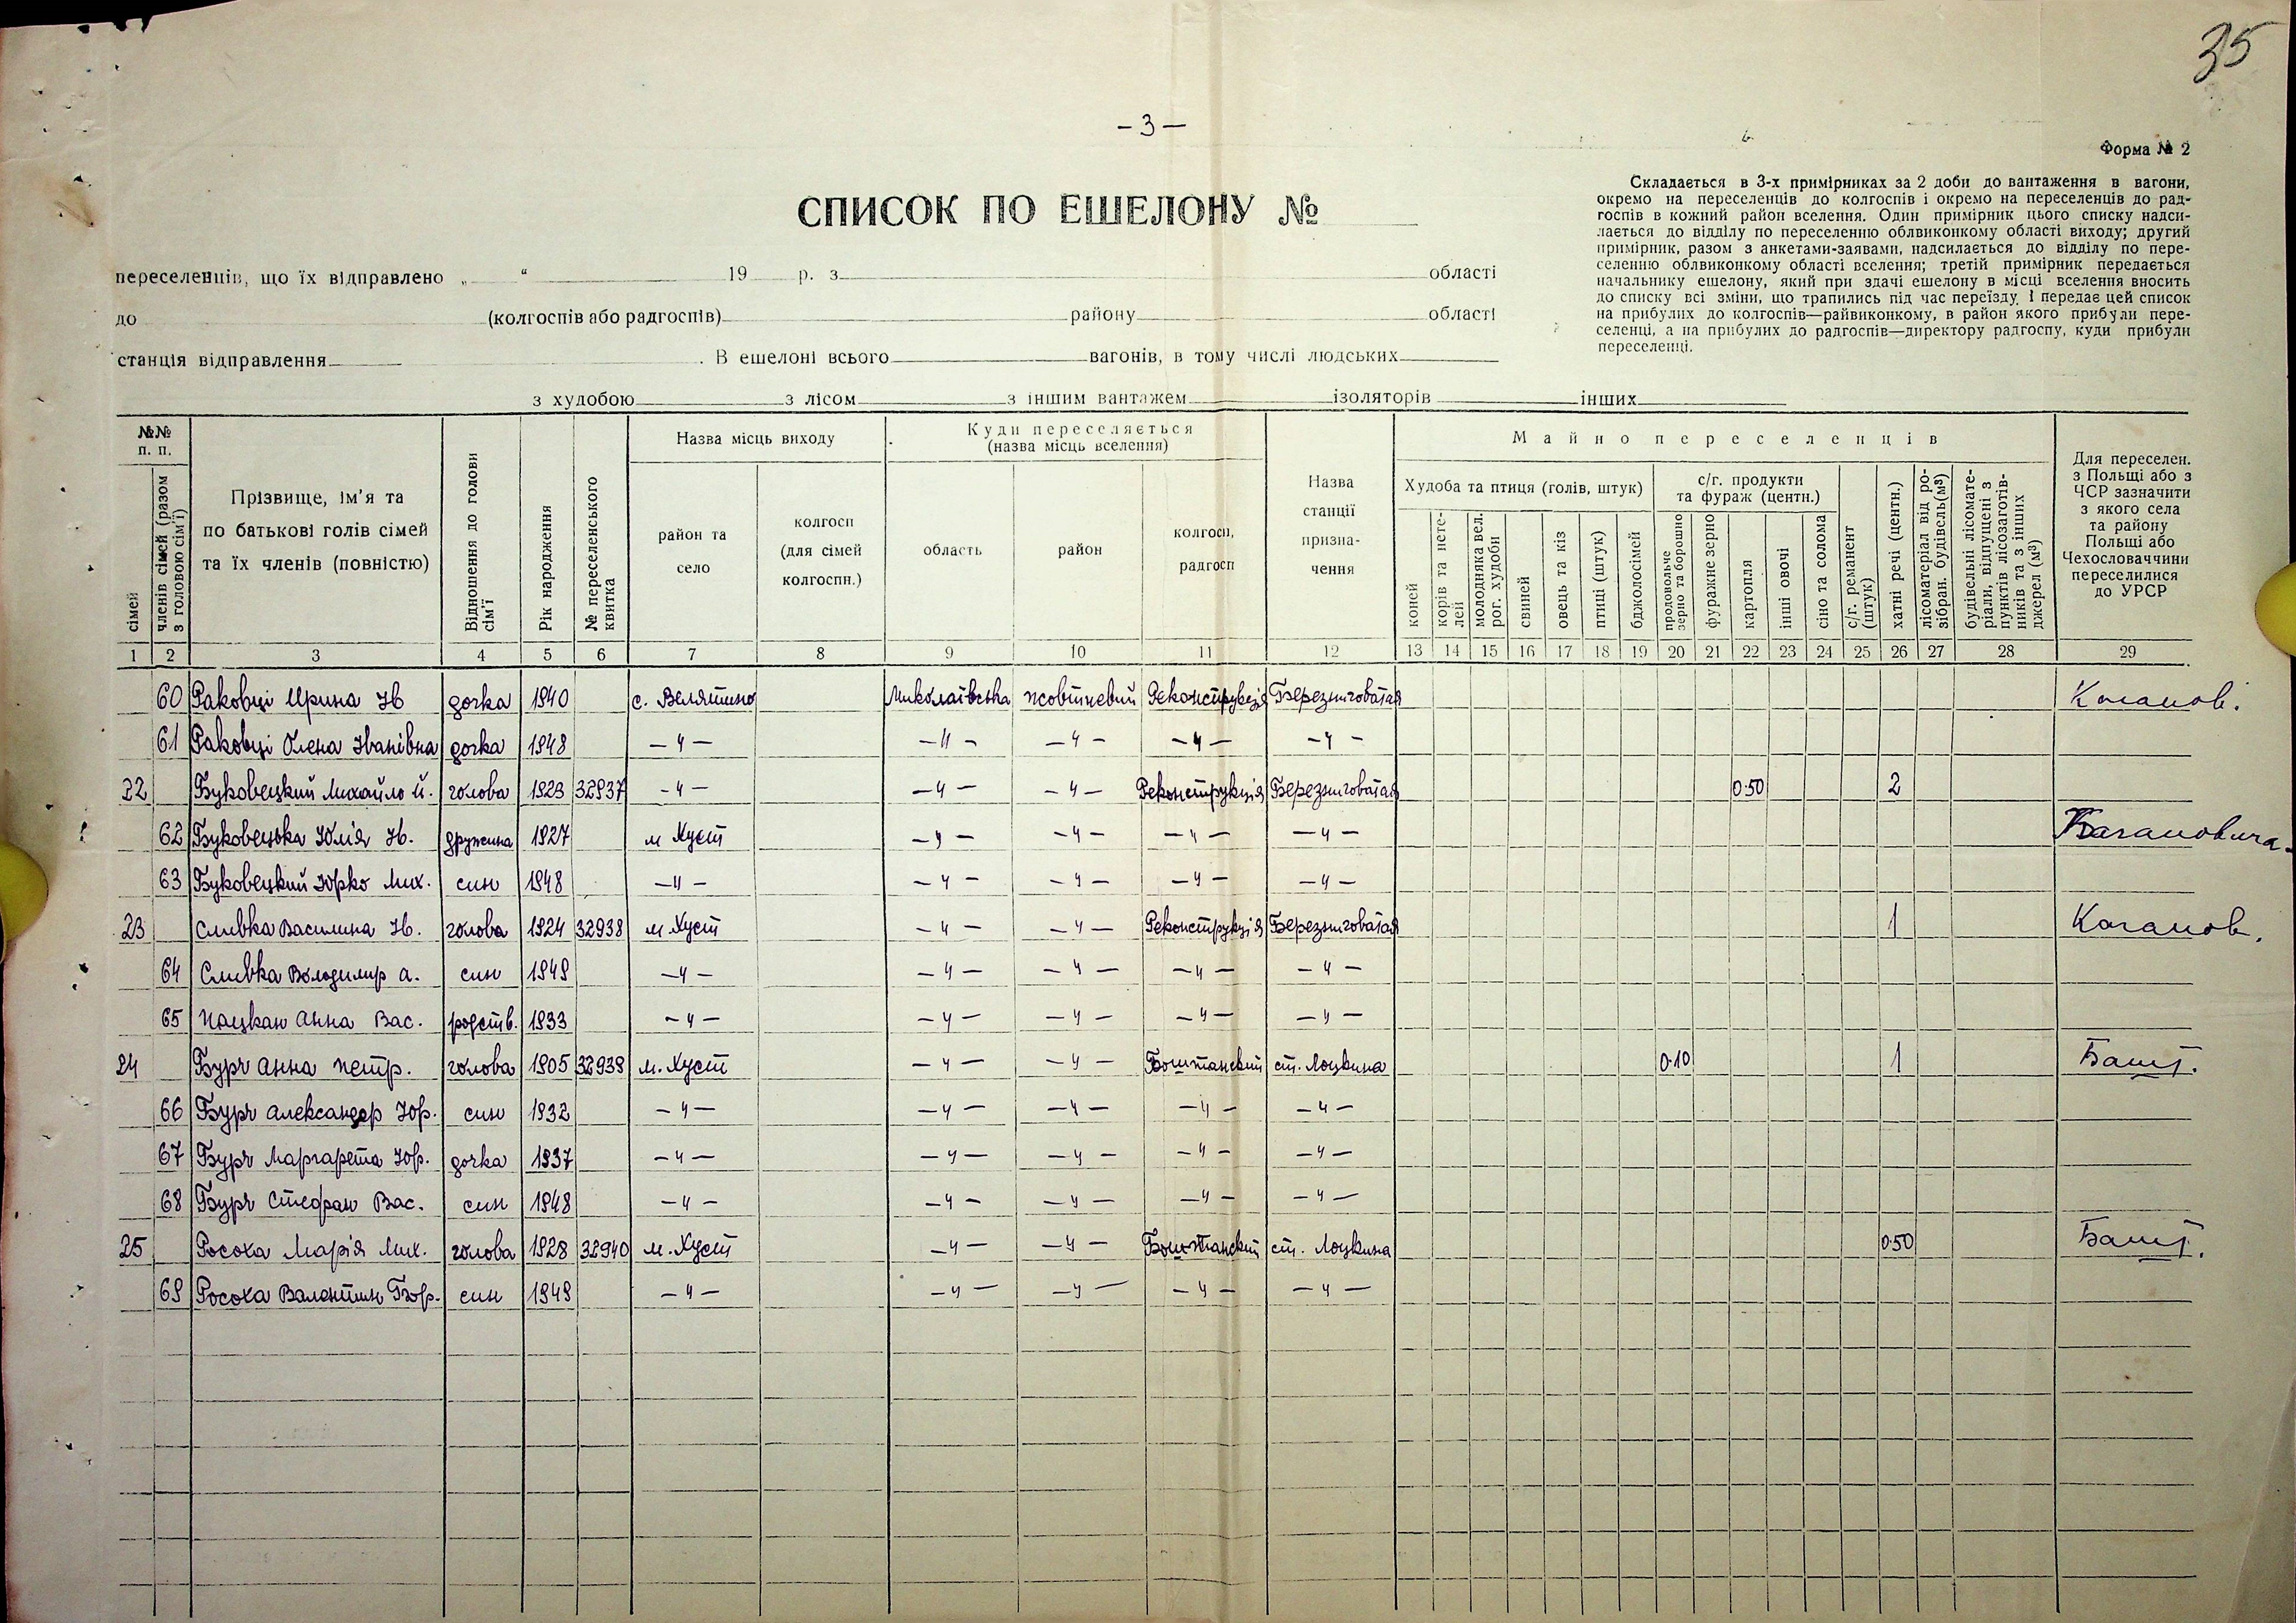 35
– 3 –
Форма № 2
СПИСОК ПО ЕШЕЛОНУ №
Складається в 3-х примірниках за 2 доби до вантаження в вагони,
окремо на переселенців до колгоспів і окремо на переселенців до рад-
госпів в кожний район вселення. Один примірник цього списку надси-
лається до відділу по переселенню облвиконкому області виходу; другий
примірник, разом з анкетами-заявами, надсилається до відділу по пере-
селенню облвиконкому області вселення; третій примірник передається
начальнику ешелону, який при здачі ешелону в місці вселення вносить
до списку всі зміни, що трапились під час переїзду і передає цей список
на прибулих до колгоспів—райвиконкому, в район якого прибули пере-
селенці, а на прибулих до радгоспів—директору радгоспу, куди прибули
переселенці.
переселенців, що їх відправлено „ “ 19 р. з області
до (колгоспів або радгоспів) району області
станція відправлення . В ешелоні всього вагонів, в тому числі людських
з худобою з лісом з іншим вантажем ізоляторів інших
№№ п. п.
сімей
членів сімей (разом з головою сім'ї)
Прізвище, ім'я та
по батькові голів сімей
та їх членів (повністю)
Відношення до голови сім'ї
Рік народження
№ переселенського квитка
Назва місць виходу
район та село
колгосп (для сімей колгоспн.)
Куди переселяється
(назва місць вселення)
область
район
колгосп, радгосп
Назва станції призна-чення
Майно переселенців
Худоба та птиця (голів, штук)
коней
корів та нетелей
молодняка вел. рог. худоби
свиней
овець та кіз
птиці (штук)
бджолосімей
с/г. продукти та фураж (центн.)
продовольче зерно та борошно
фуражне зерно
картопля
інші овочі
сіно та солома
с/г. реманент (штук)
хатні речі (центн.)
лісоматеріал від розібран. будівель (м³)
будівельні лісоматеріали, відпущені з пунктів лісозаготівників та з інших джерел (м³)
Для переселен.
з Польщі або з
ЧСР зазначити
з якого села
та району
Польщі або
Чехословаччини
переселилися
до УРСР
1 2 3 4 5 6 7 8 9 10 11 12 13 14 15 16 17 18 19 20 21 22 23 24 25 26 27 28 29
60 Раковці Ирина Ів дочка 1940 с. Велятино Миколаївська жовтневий Реконструкція Березниговатая Каганов.
61 Раковці Олена Іванівна дочка 1948 –"– –"– –"– –"– –"–
22 Буковецкий Михайло й. голова 1923 32937 –"– –"– –"– Реконструкція Березниговатая 0.50 2
62 Буковецька Юлія Ів. дружина 1927 м Хуст –"– –"– –"– –"– Кагановича
63 Буковецкий Юрко Мих. син 1948 –"– –"– –"– –"– –"–
23 Сливка Василина Ів. голова 1924 32938 м Хуст –"– –"– Реконструкція Березниговатая 1 Каганов.
64 Сливка Володимир а. син 1949 –"– –"– –"– –"– –"–
65 Пацкан Анна Вас. родств. 1933 –"– –"– –"– –"– –"–
24 Бурч Анна петр. голова 1905 32939 м. Хуст –"– –"– Боштанский ст. Лоцкина 0.10 1 Башт.
66 Бурч Александер Юр. син 1932 –"– –"– –"– –"– –"–
67 Бурч Маргарета Юр. дочка 1937 –"– –"– –"– –"– –"–
68 Бурч Стефан Вас. син 1948 –"– –"– –"– –"– –"–
25 Росоха Марія Мих. голова 1928 32940 м. Хуст –"– –"– Боштанский ст. Лоцкина 0.50 Башт.
69 Росоха Валентин син 1949 –"– –"– –"– –"– –"–